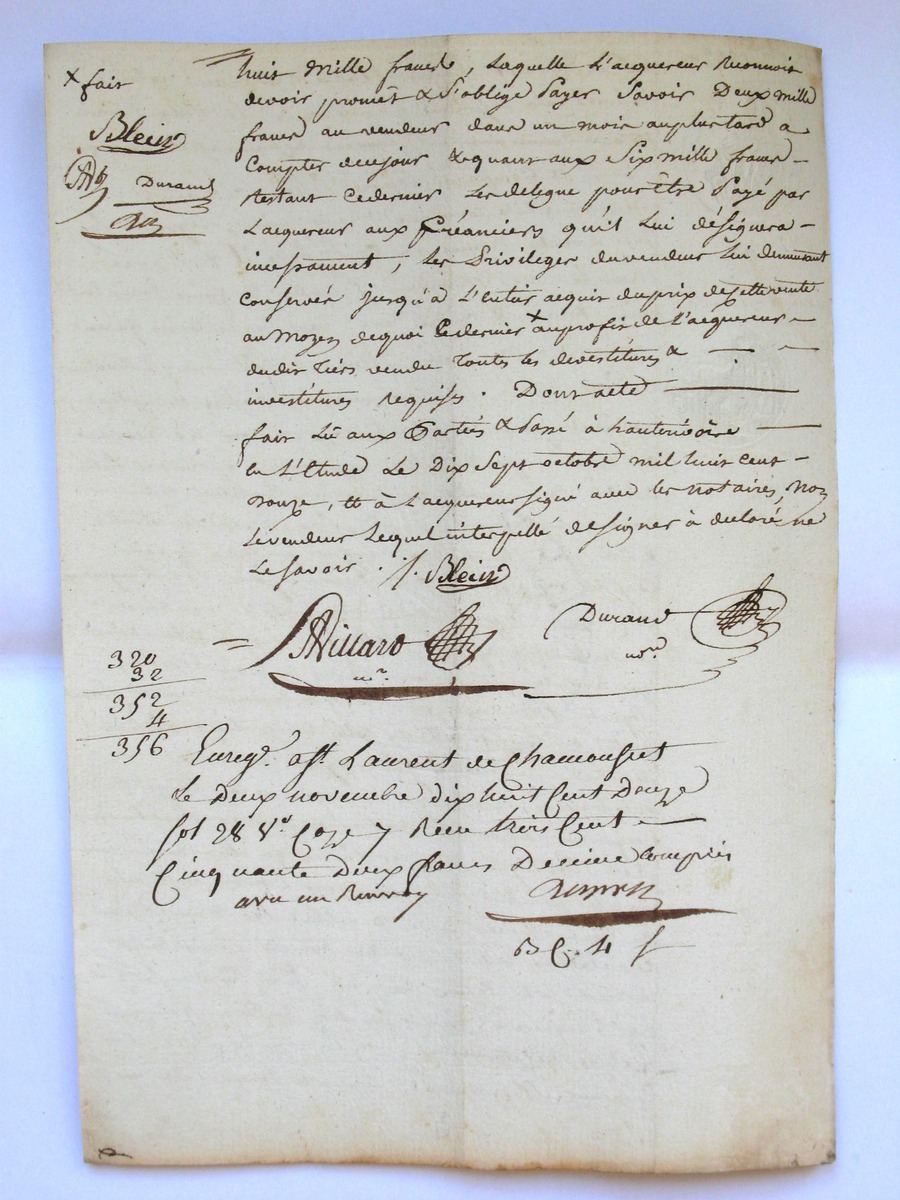 x fait
Blein
Durand
huit mille francs, laquelle l'acquereur Reconnoit
devoir promet & s'oblige Payer Savoir Deux mille
francs au vendeur dans un mois auplus tard a
Compter decejour & quant aux Six mille francs -
Restant cedernier les delegue pour être Payé par
L'acquereur aux Créanciers qu'il Lui désignera -
incessament, les Privileges duvendeur lui demeurant
Conservés jusqu'à L'entier acquit duprix decette vente
au moyen dequoi cedernier x auprofit de l'acquereur -
dudit tiers vendu toutes les devestitures &
investitures requises. Dont acte
fait Lû aux Parties & Passé à hauterivoire
En L'Etude Le Dix Sept octobre mil huit cent -
Douze, et à L'acquereur signé avec les notaires, non
Levendeur Lequel interpellé designer à declaré ne
Le savoir. /. Blein
Villard
nre.
Durand
nore.
320
32
352
4
356
Enregé. a St. Laurent de Chamousset
le Deux novembre dix huit Cent Douze
fol 28 Vo. Case 7 Recu trois Cent
Cinquante Deux francs Decime compris
avec un Renvoy
B C. 4 f